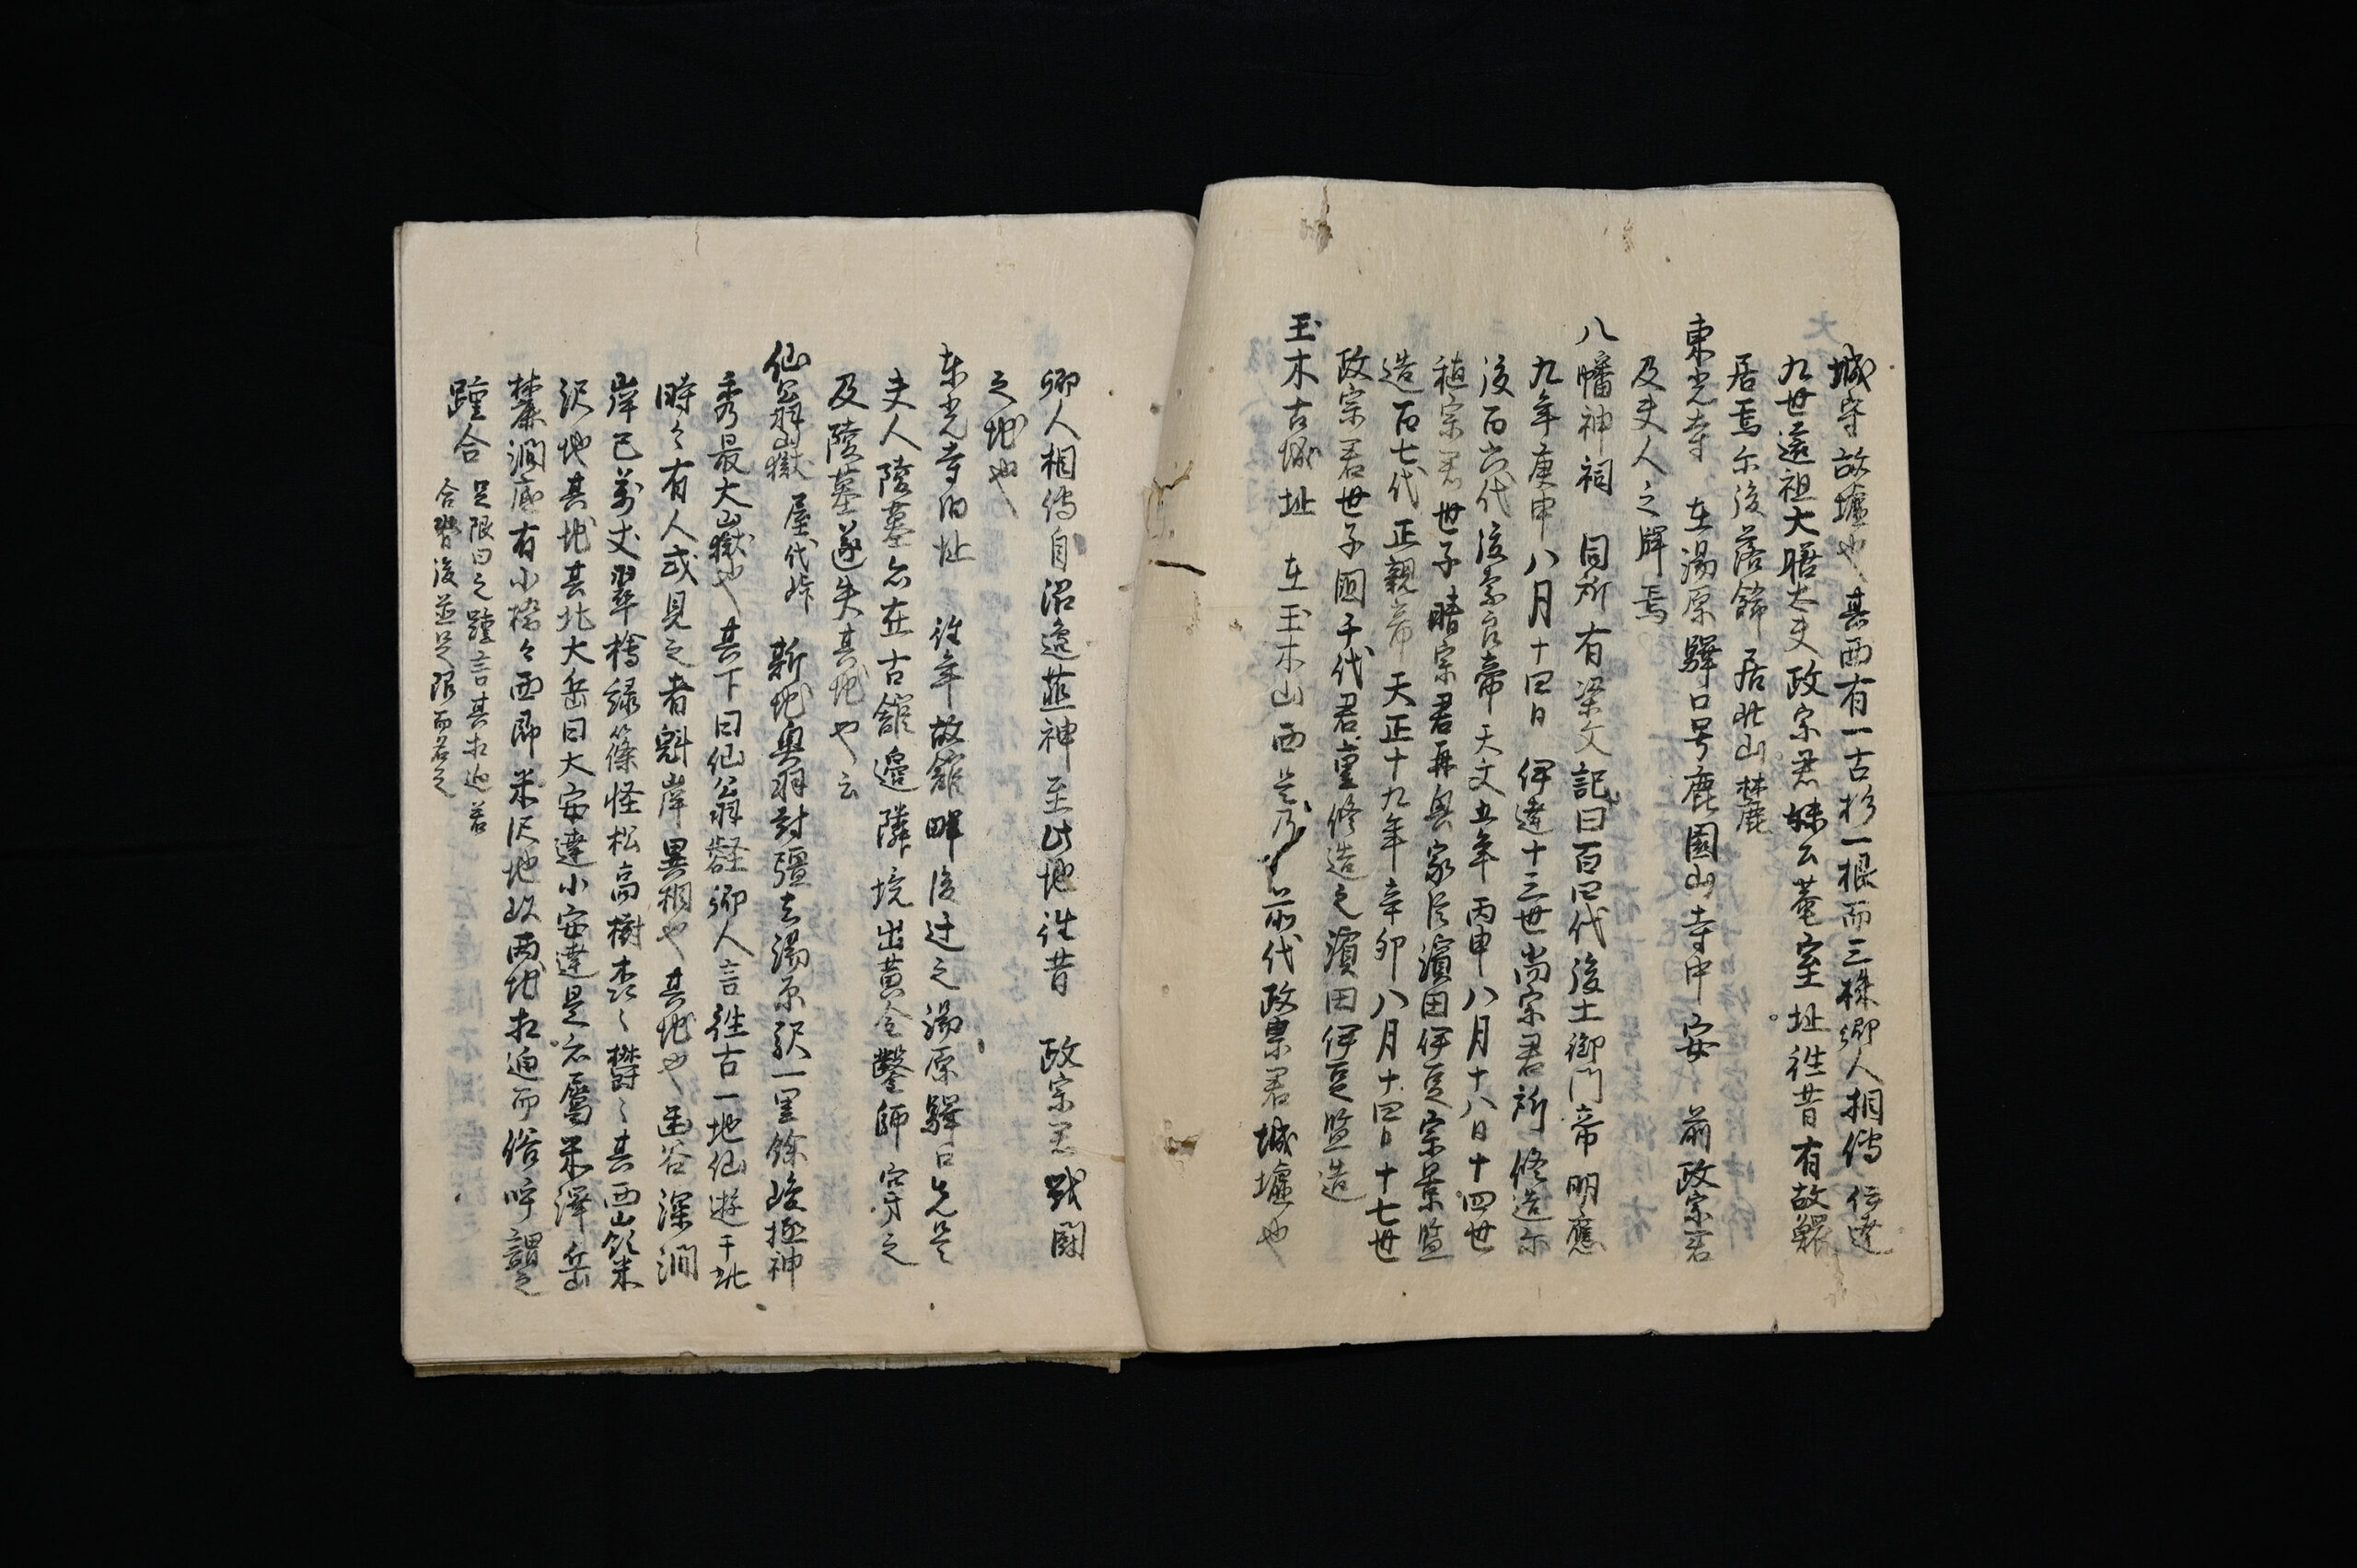 城守故墟也其西有一古杉一根而三株郷人相傳伊達
九世遠祖大膳大夫政宗君妹公菴室址徃昔有故鰥
居焉尓後落飾居此山麓
東光寺 在湯原驛口号鹿園山寺中安 前政宗君
及夫人之牌焉
八幡神祠 同所有梁文記曰百四代後土御門帝明應
九年庚申八月十四日伊達十三世尚宗君所修造尓
後百六代後奈良帝天文五年丙申八月十八日十四世
稙宗君世子晴宗君再興家臣濱田伊豆宗景監
造百七代正親帝天正十九年辛卯八月十四日十七世
政宗君世子國千代君重修造之濱田伊豆監造
玉木古城址 在玉木山西是乃前代政宗君城墟也
郷人相傳自沼邉 神至此地徃昔 政宗君戦闘
之地也
東光寺旧址 徃年故舘畔後迁之湯原驛口先是
夫人陵墓亦在古舘邉隣境出黄金鑿師穿之
及陵墓遂失其地也云
仙公羽山嶽 屋代峠 新地奥羽封彊去湯原駅一里餘峻極神
秀最大山嶽也其下曰仙翁 郷人言徃古一地仙遊于此
時々有人或見之者魁岸異相也其地也幽谷深澗
岸已萬丈翠檜緑篠怪松高樹森々欝々其西山於米
沢地其地其北大岳曰大安達小安達是亦属米澤岳
麓澗底有小橋々西即米沢地故両地相迫而俗呼謂之
蹱合 足限曰之蹱言其相迫若
合 後並足限而名之